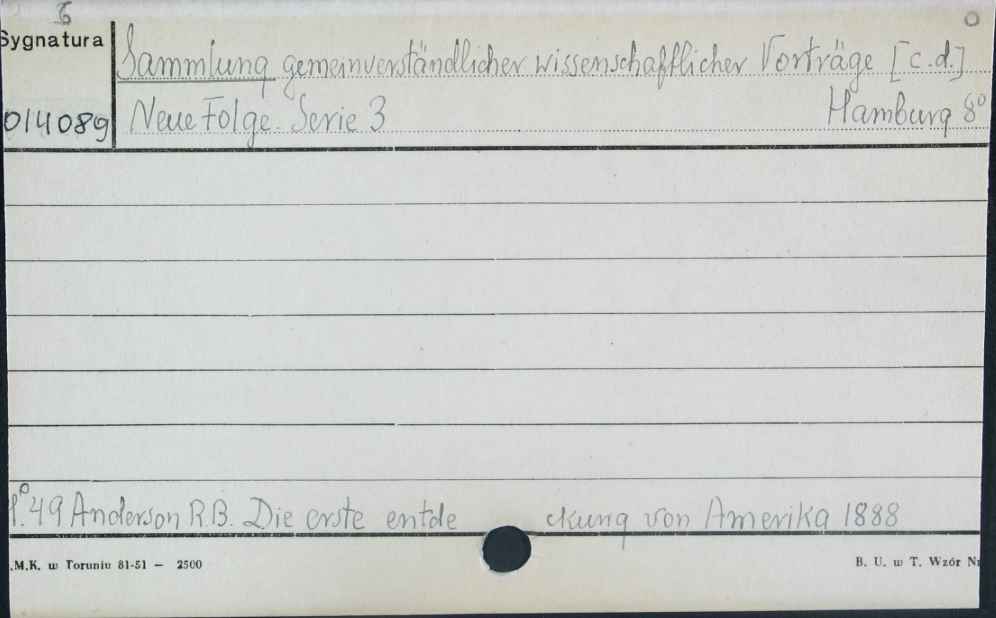 6
Sygnatura
Sammlung gemeinverständlicher wissenschafflicher Vorträge [c.d.]
014089 Neue Folge. Serie 3 Hamburg 8°
49 Anderson R.B. Die erste entde ckung von Amerika 1888
.M.K. w Toruniu 81-51 — 2500 B. U. w T. Wzór Nr